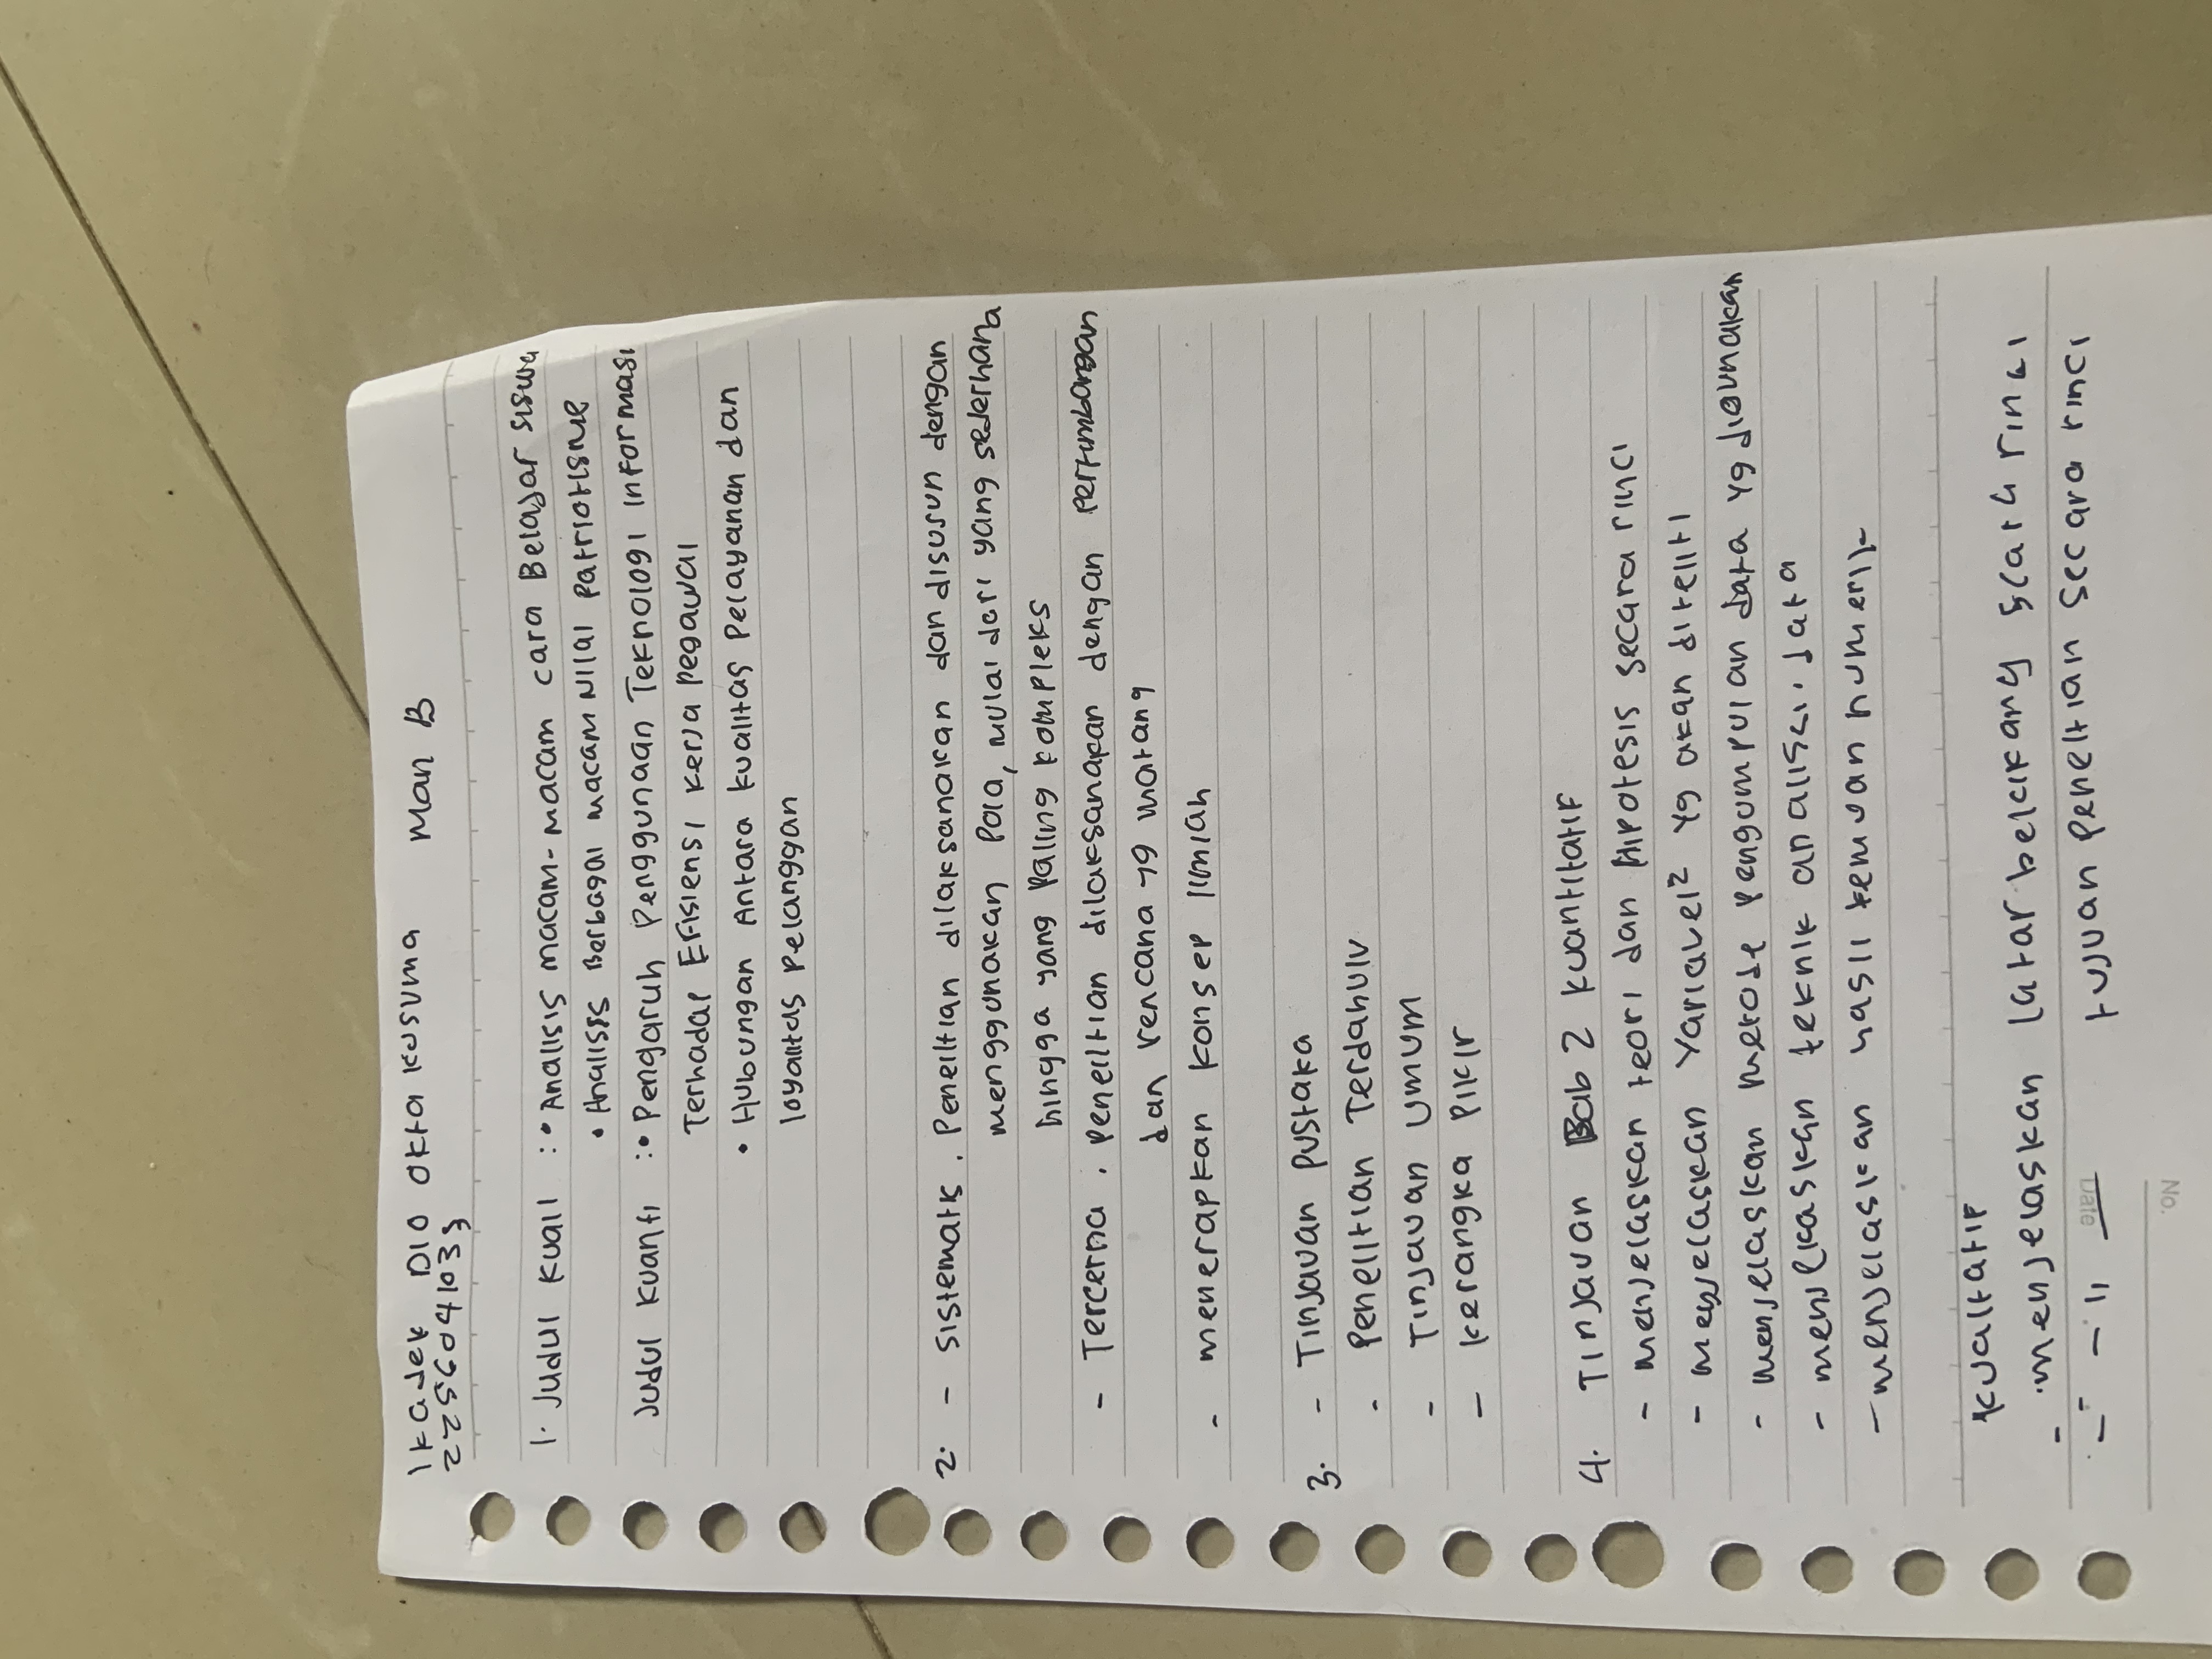 I Kadek Dio Okta Kusuma Man B
2256041033
1. Judul Kuali : • Analisis macam-macam cara Belajar siswa
• Analisis Berbagai macam Nilai Patriotisme
Judul Kuanti : • Pengaruh Penggunaan Teknologi Informasi
Terhadap Efisiensi Kerja Pegawai
• Hubungan Antara kualitas Pelayanan dan
loyalitas Pelanggan
2. - Sistematis. Penelitian dilaksanakan dan disusun dengan
menggunakan Pola, mulai dari yang sederhana
hingga yang Paling kompleks
- Tercerna. Penelitian dilaksanakan dengan
dan rencana yg matang
- menerapkan konsep ilmiah
3. - Tinjauan Pustaka
- Penelitian Terdahulu
- Tinjauan Umum
- kerangka Pikir
4. Tinjauan Bab 2 kuantitatif
- menjelaskan teori dan Hipotesis secara rinci
- menjelaskan Variavel² yg akan diteliti
- menjelaskan metode pengumpulan data yg digunakan
- menjelaskan teknik analisis data
- menjelaskan hasil temuan numerik
kualtatif
- menjelaskan latar belakang secara rinci
- - 11 tujuan penelitian secara rinci
Date
No.